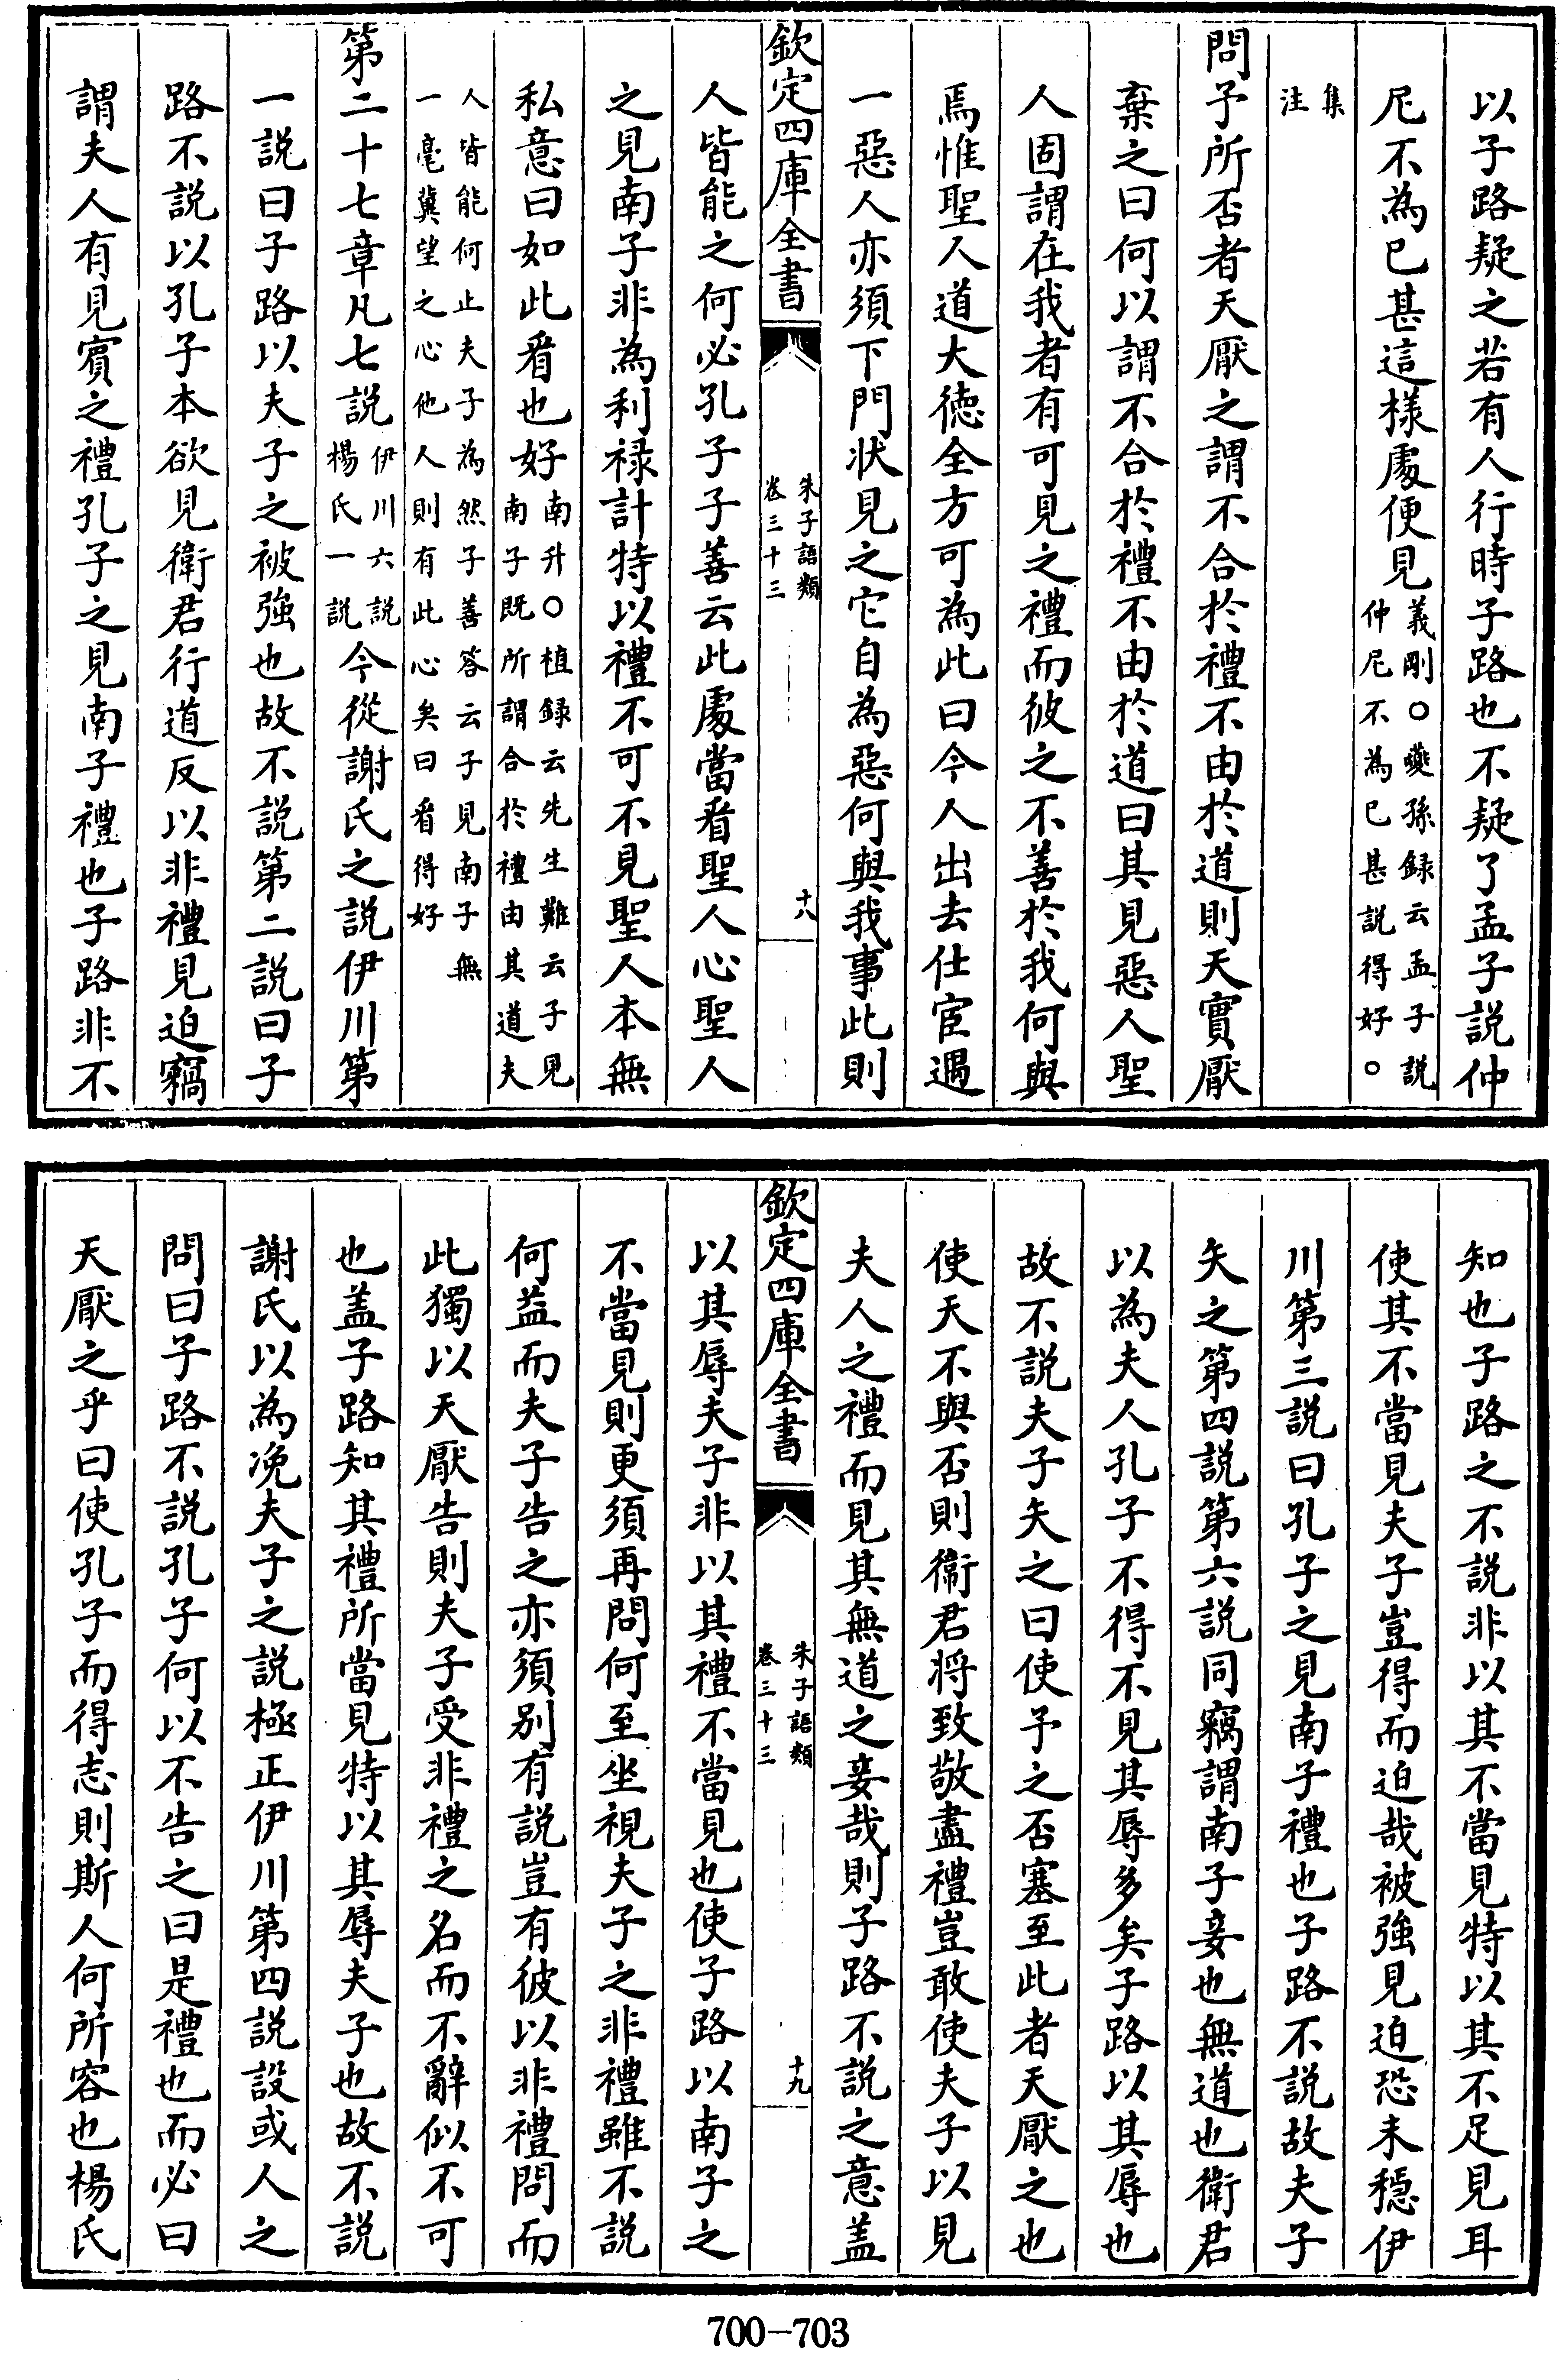 以子路疑之若有人行時子路也不疑了孟子説仲
尼不為已甚這樣處便見義剛○夔孫録云孟子説仲尼不為已甚説得好○
集注
問予所否者天厭之謂不合於禮不由於道則天實厭
棄之曰何以謂不合於禮不由於道曰其見惡人聖
人固謂在我者有可見之禮而彼之不善於我何與
焉惟聖人道大徳全方可為此曰今人出去仕宦遇
一惡人亦須下門状見之它自為惡何與我事此則
欽定四庫全書
朱子語類
卷三十三
十八
人皆能之何必孔子子善云此處當㸔聖人心聖人
之見南子非為利禄計特以禮不可不見聖人本無
私意曰如此㸔也好南升○植録云先生難云子見南子既所謂合於禮由其道夫
人皆能何止夫子為然子善答云子見南子無一毫冀望之心他人則有此心矣曰㸔得好
第二十七章凡七説伊川六説楊氏一説今從謝氏之説伊川第
一説曰子路以夫子之被強也故不説第二説曰子
路不説以孔子本欲見衛君行道反以非禮見迫竊
謂夫人有見賔之禮孔子之見南子禮也子路非不
知也子路之不説非以其不當見特以其不足見耳
使其不當見夫子豈得而迫哉被強見迫恐未穩伊
川第三説曰孔子之見南子禮也子路不説故夫子
矢之第四説第六説同竊謂南子妾也無道也衛君
以為夫人孔子不得不見其辱多矣子路以其辱也
故不説夫子矢之曰使予之否塞至此者天厭之也
使天不與否則衛君将致敬盡禮豈敢使夫子以見
夫人之禮而見其無道之妾哉則子路不説之意盖
欽定四庫全書
朱子語類
卷三十三
十九
以其辱夫子非以其禮不當見也使子路以南子之
不當見則更須再問何至坐視夫子之非禮雖不説
何益而夫子告之亦須别有説豈有彼以非禮問而
此獨以天厭告則夫子受非禮之名而不辭似不可
也盖子路知其禮所當見特以其辱夫子也故不説
謝氏以為浼夫子之説極正伊川第四説設或人之
問曰子路不説孔子何以不告之曰是禮也而必曰
天厭之乎曰使孔子而得志則斯人何所容也楊氏
700-703